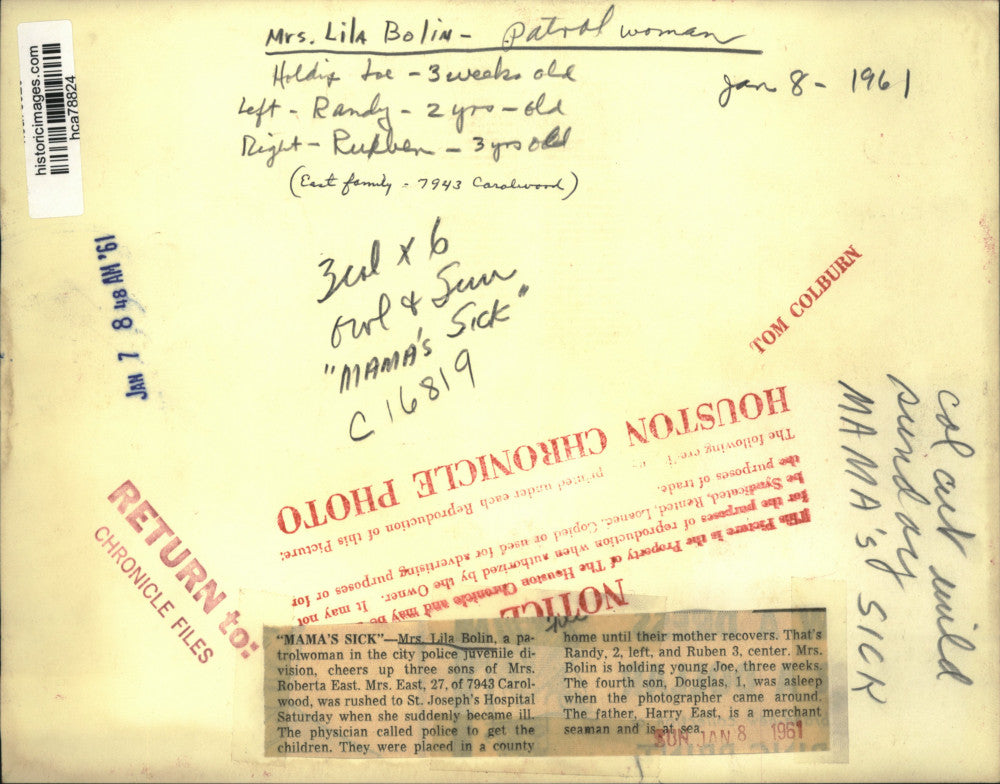 Mrs. Lila Bolin - Patrol woman
Holding Joe - 3 weeks old
Left - Randy - 2 yrs - old
Right - Reuben - 3 yrs old
(East family - 7943 Carolwood)
Jan 8 - 1961
historicimages.com
hca78824
JAN 7 8 48 AM '61
3 col x 6
& Sun
"MAMA'S SICK"
C 16819
TOM COLBURN
HOUSTON CHRONICLE PHOTO
The following credit printed under each Reproduction of this Picture:
NOTICE
This Picture is the Property of The Houston Chronicle and may be
for purposes of reproduction when authorized by the Owner. It may not
be Syndicated, Rented, Loaned, Copied or used for advertising purposes or for
the purposes of trade.
RETURN to:
CHRONICLE FILES
col cut
sunday
MAMA'S SICK
"MAMA'S SICK"—Mrs. Lila Bolin, a pa-
trolwoman in the city police juvenile di-
vision, cheers up three sons of Mrs.
Roberta East. Mrs. East, 27, of 7943 Carol-
wood, was rushed to St. Joseph's Hospital
Saturday when she suddenly became ill.
The physician called police to get the
children. They were placed in a county
home until their mother recovers. That's
Randy, 2, left, and Ruben 3, center. Mrs.
Bolin is holding young Joe, three weeks.
The fourth son, Douglas, 1, was asleep
when the photographer came around.
The father, Harry East, is a merchant
seaman and is at sea.
SUN JAN 8 1961